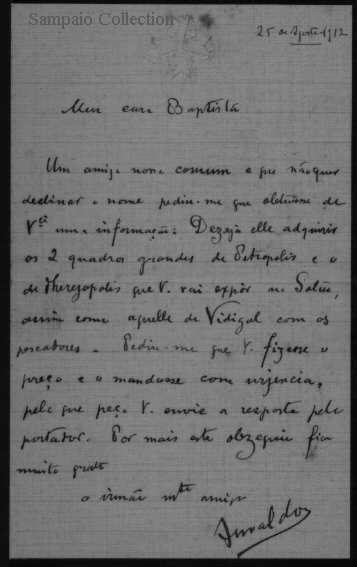 Sampaio Collection
25 de Agosto 1912
Meu caro Baptista
Um amigo nosso comum e que não quer
declinar o nome pediu-me que obtivesse de
Vcê uma informação: Dezeja elle adquirir
os 2 quadros grandes de Petropolis e o
de Therezopolis que V. vai expôr no Salão,
assim como aquelle de Vidigal com os
pescadores. Pediu-me que V. fizesse o
preço e o mandasse com urjencia,
pelo que peço V. envie a resposta pelo
portador. Por mais este obzequio fica
muito grato
o irmão mto amigo